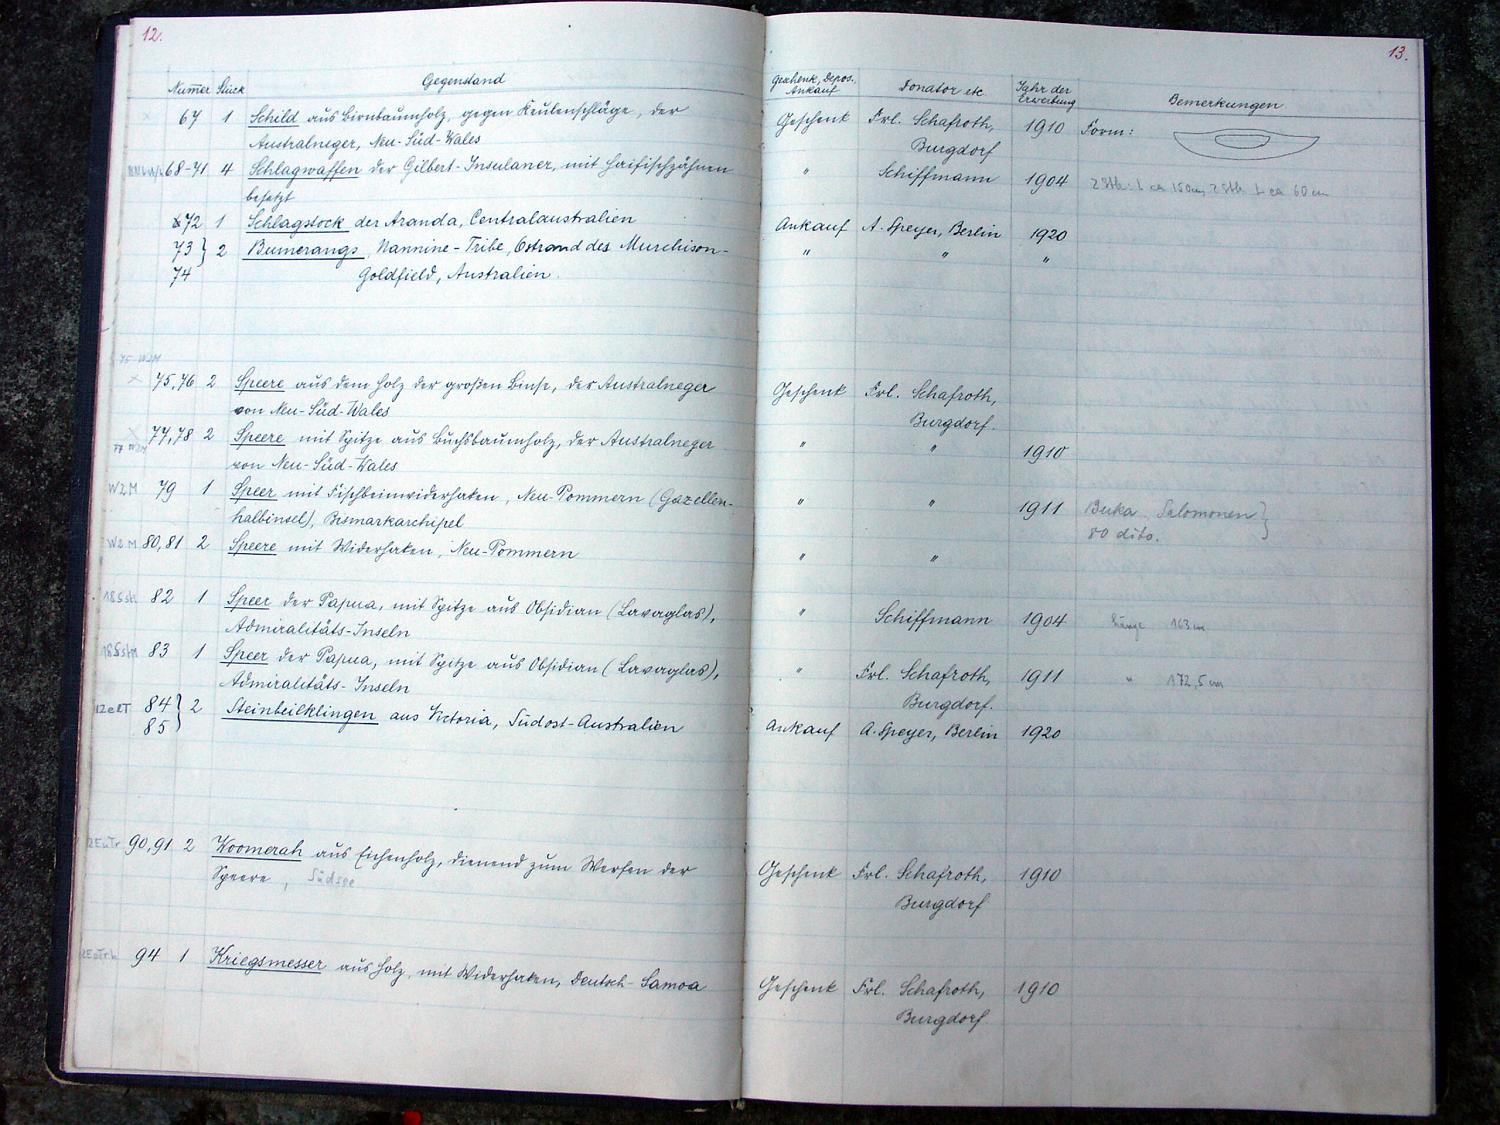 12.
13.
Numer Stück Gegenstand Geschenk, Depos. Ankauf Donator etc Jahr der Erwerbung Bemerkungen
67 1 Schild aus Birnbaumholz, gegen Keulenschläge, der Geschenk Frl. Schafroth, 1910 Form:
Australneger, Neu-Süd-Wales Burgdorf
68-71 4 Schlagwaffen der Gilbert-Insulaner, mit Haifischzähnen " Schiffmann 1904 2 Stk: L ca 150cm, 2 Stk L ca 60 cm
besetzt
72 1 Schlagstock der Aranda, Centralaustralien Ankauf A. Speyer, Berlin 1920
73 } 2 Bumerangs, Nannine-Tribe, Ostrand des Murchison- " " "
74 Goldfield, Australien.
75 W2M
75,76 2 Speere aus dem Holz der großen Binse, der Australneger Geschenk Frl. Schafroth,
von Neu-Süd-Wales Burgdorf.
77,78 2 Speere mit Spitze aus Buchsbaumholz, der Australneger " " 1910
77 W2M von Neu-Süd-Wales
W2M 79 1 Speer mit Fischbeinwiderhaken, Neu-Pommern (Gazellen- " " 1911 Buka Salomonen }
halbinsel), Bismarkarchipel 80 dito.
W2M 80,81 2 Speere mit Widerhaken, Neu-Pommern " "
82 1 Speer der Papua, mit Spitze aus Obsidian (Lavaglas), " Schiffmann 1904 Länge 163 cm
Admiralitäts-Inseln
83 1 Speer der Papua, mit Spitze aus Obsidian (Lavaglas), " Frl. Schafroth, 1911 " 172,5 cm
Admiralitäts-Inseln Burgdorf.
84 } 2 Steinbeilklingen aus Victoria, Südost-Australien Ankauf A. Speyer, Berlin 1920
85
90,91 2 Woomerah aus Eichenholz, dienend zum Werfen der Geschenk Frl. Schafroth, 1910
Speere, Südsee Burgdorf
94 1 Kriegsmesser aus Holz, mit Widerhaken, Deutsch-Samoa Geschenk Frl. Schafroth, 1910
Burgdorf